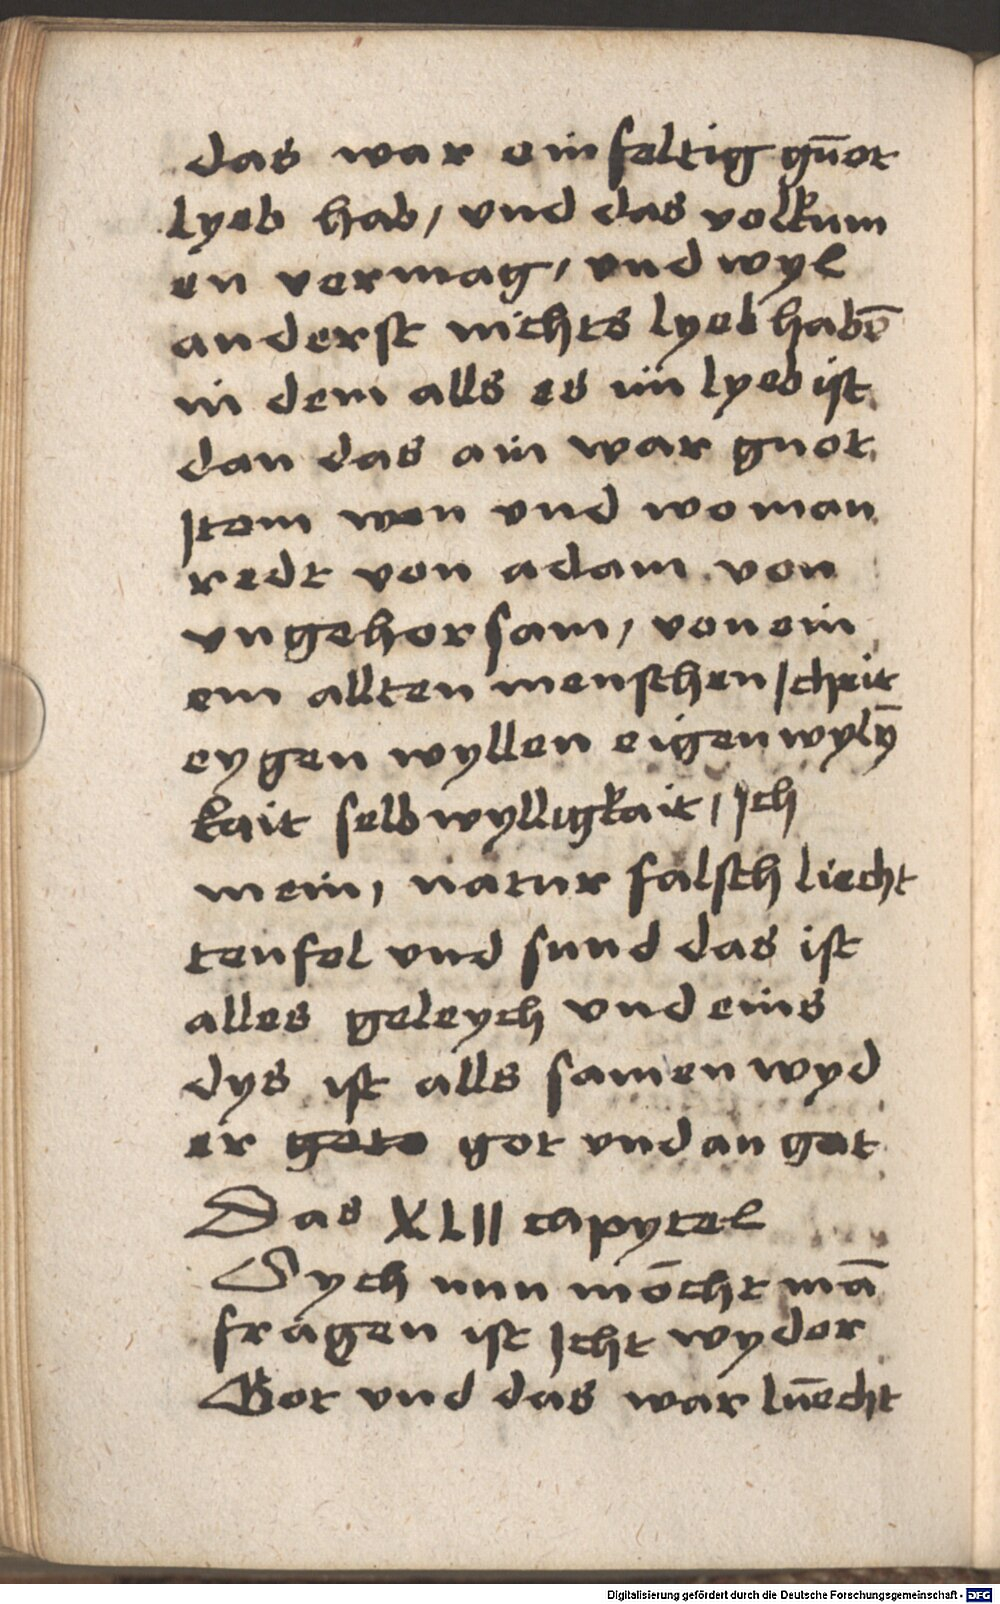 das war einfaltig gūot
lyeb hab, vnd das volkum
en vermag, vnd wyl
anderst nichts lyeb habē
in dem alls es im lyeb ist
dan das ain war guot
Item wen vnd wo man
redt von adam von
vngehorsam, von ein
em allten menschen Icheit
eygen wyllen eigenwylȳ
kait selbwylligkait, Ich
mein, natur falsch liecht
teufel vnd sund das ist
alles geleych vnd eins
dys ist alls samen wyd
er gote got vnd an got
Das XLII capytel
Sych nun mōcht mā
fragen ist Icht wyder
Got vnd das war lūecht
Digitalisierung gefördert durch die Deutsche Forschungsgemeinschaft - DFG